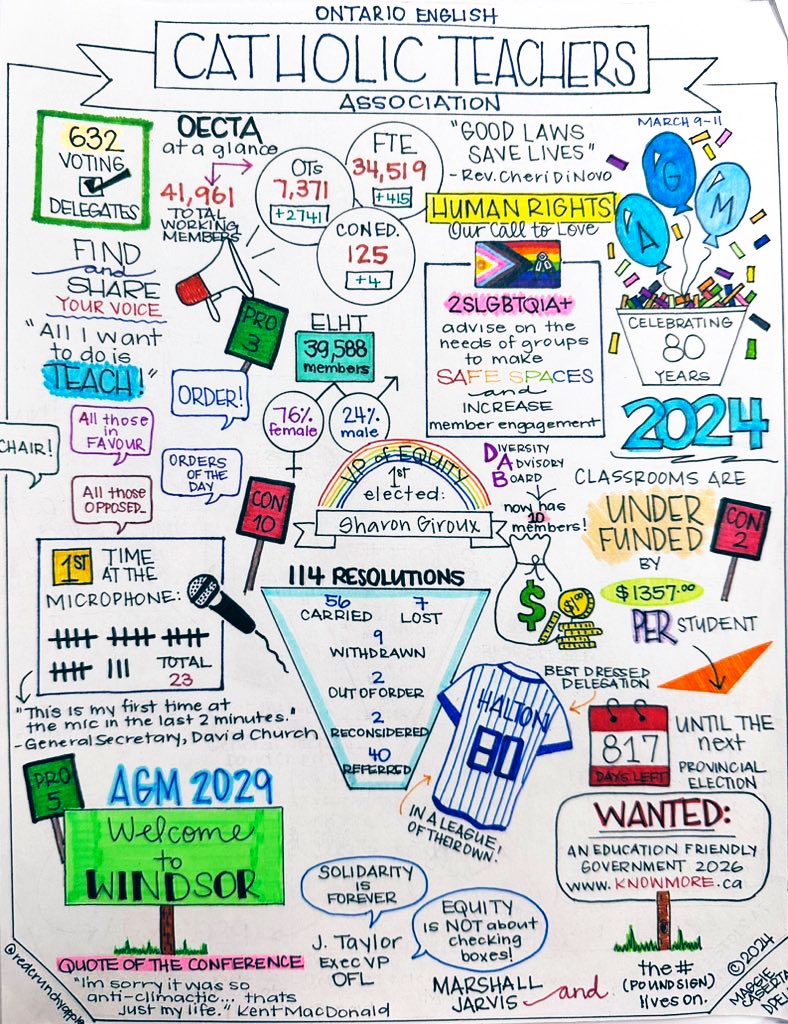 ONTARIO ENGLISH
CATHOLIC TEACHERS
ASSOCIATION
632
VOTING
DELEGATES
OECTA
at a glance
41,961
TOTAL
WORKING
MEMBERS
OTs
7,371
+2741
FTE
34,519
+415
CON.ED.
125
+4
"GOOD LAWS
SAVE LIVES"
- Rev. Cheri DiNovo
HUMAN RIGHTS
Our Call to Love
MARCH 9-11
A
G
M
CELEBRATING
80
YEARS
2024
FIND
and
SHARE
YOUR VOICE
"All I want
to do is
TEACH!"
PRO
3
ELHT
39,588
members
76%
female
24%
male
2SLGBTQIA+
advise on the
needs of groups
to make
SAFE SPACES
and
INCREASE
member engagement
ORDER!
All those
in
FAVOUR
CHAIR!
ORDERS
OF THE
DAY
All those
OPPOSED_
CON
10
VP of EQUITY
1st
elected:
Sharon Giroux
DIVERSITY
ADVISORY
BOARD
now has
10
members!
$
$
CLASSROOMS ARE
UNDER
FUNDED
BY
$1357.00
PER STUDENT
CON
2
1ST TIME
AT THE
MICROPHONE:
TOTAL
23
"This is my first time at
the mic in the last 2 minutes."
- General Secretary, David Church
114 RESOLUTIONS
56
CARRIED
7
LOST
9
WITHDRAWN
2
OUT OF ORDER
2
RECONSIDERED
40
REFERRED
BEST DRESSED
DELEGATION
HALTON
80
IN A LEAGUE
OF THEIR OWN!
817
DAYS LEFT
UNTIL THE
next
PROVINCIAL
ELECTION
PRO
5
AGM 2029
Welcome
to
WINDSOR
WANTED:
AN EDUCATION FRIENDLY
GOVERNMENT 2026
www.KNOWMORE.ca
SOLIDARITY
IS
FOREVER
J. Taylor
Exec VP
OFL
EQUITY
is NOT about
checking
boxes!
MARSHALL
JARVIS and
the #
(POUND SIGN)
lives on.
QUOTE OF THE CONFERENCE
"I'm sorry it was so
anti-climactic... thats
just my life." Kent MacDonald
@redcrunchyapple
©2024
MAGGIE